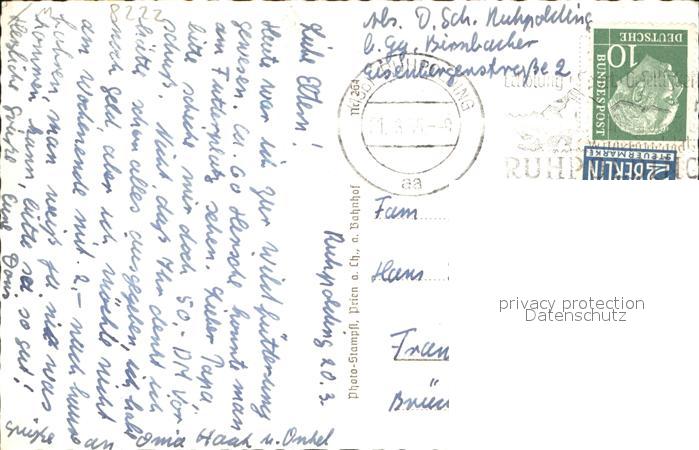 8222
Abs. D. Sch. Ruhpolding
b. Gg. Birnbacher
Eisenbergenstraße 2
10
DEUTSCHE
BUNDESPOST
2 BERLIN
STEUERMARKE
RUHPOLDING
aa
Ruhpolding 20.3.
Liebe Eltern!
Heute war ich zur Wildfütterung
gewesen. Ca. 60 Hirsche konnte man
am Futterplatz sehen. Lieber Papa
bitte schicke mir doch 50,- DM Vor-
schuß. Nicht daß Ihr denkt ich
hätte schon alles ausgegeben, ich habe
noch Geld aber ich möchte nicht
am Wochenende mit 2,- nach hause
fahren, man weiß ja nie was
kommen kann, bitte sei so gut!
Herzlich grüßt Euer
Grüße an Oma Haak u. Onkel
Photo-Stampfl, Prien a. Ch., a. Bahnhof
Fam
Hans
Fran
Brün
privacy protection
Datenschutz